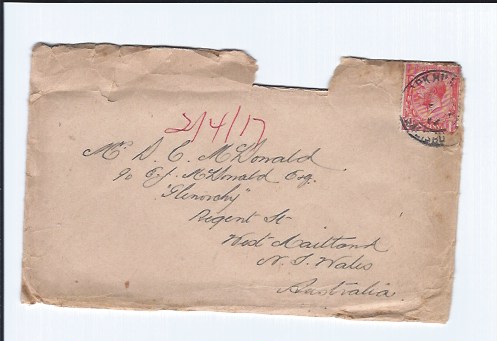 2/4/17
Mr D. C. McDonald
c/o E.J. McDonald Esq.
"Glenorchy"
Regent St
West Maitland
N. S. Wales
Australia.